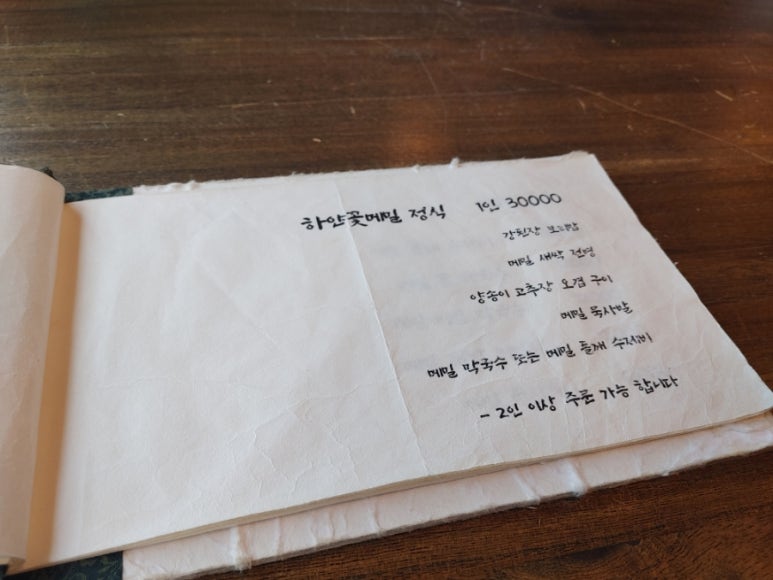 하얀꽃메밀 정식 1인 30000
강된장 보리밥
메밀 새싹 전병
양송이 고추장 오겹 구이
메밀 묵사발
메밀 막국수 또는 메밀 들깨 수제비
- 2인 이상 주문 가능 합니다